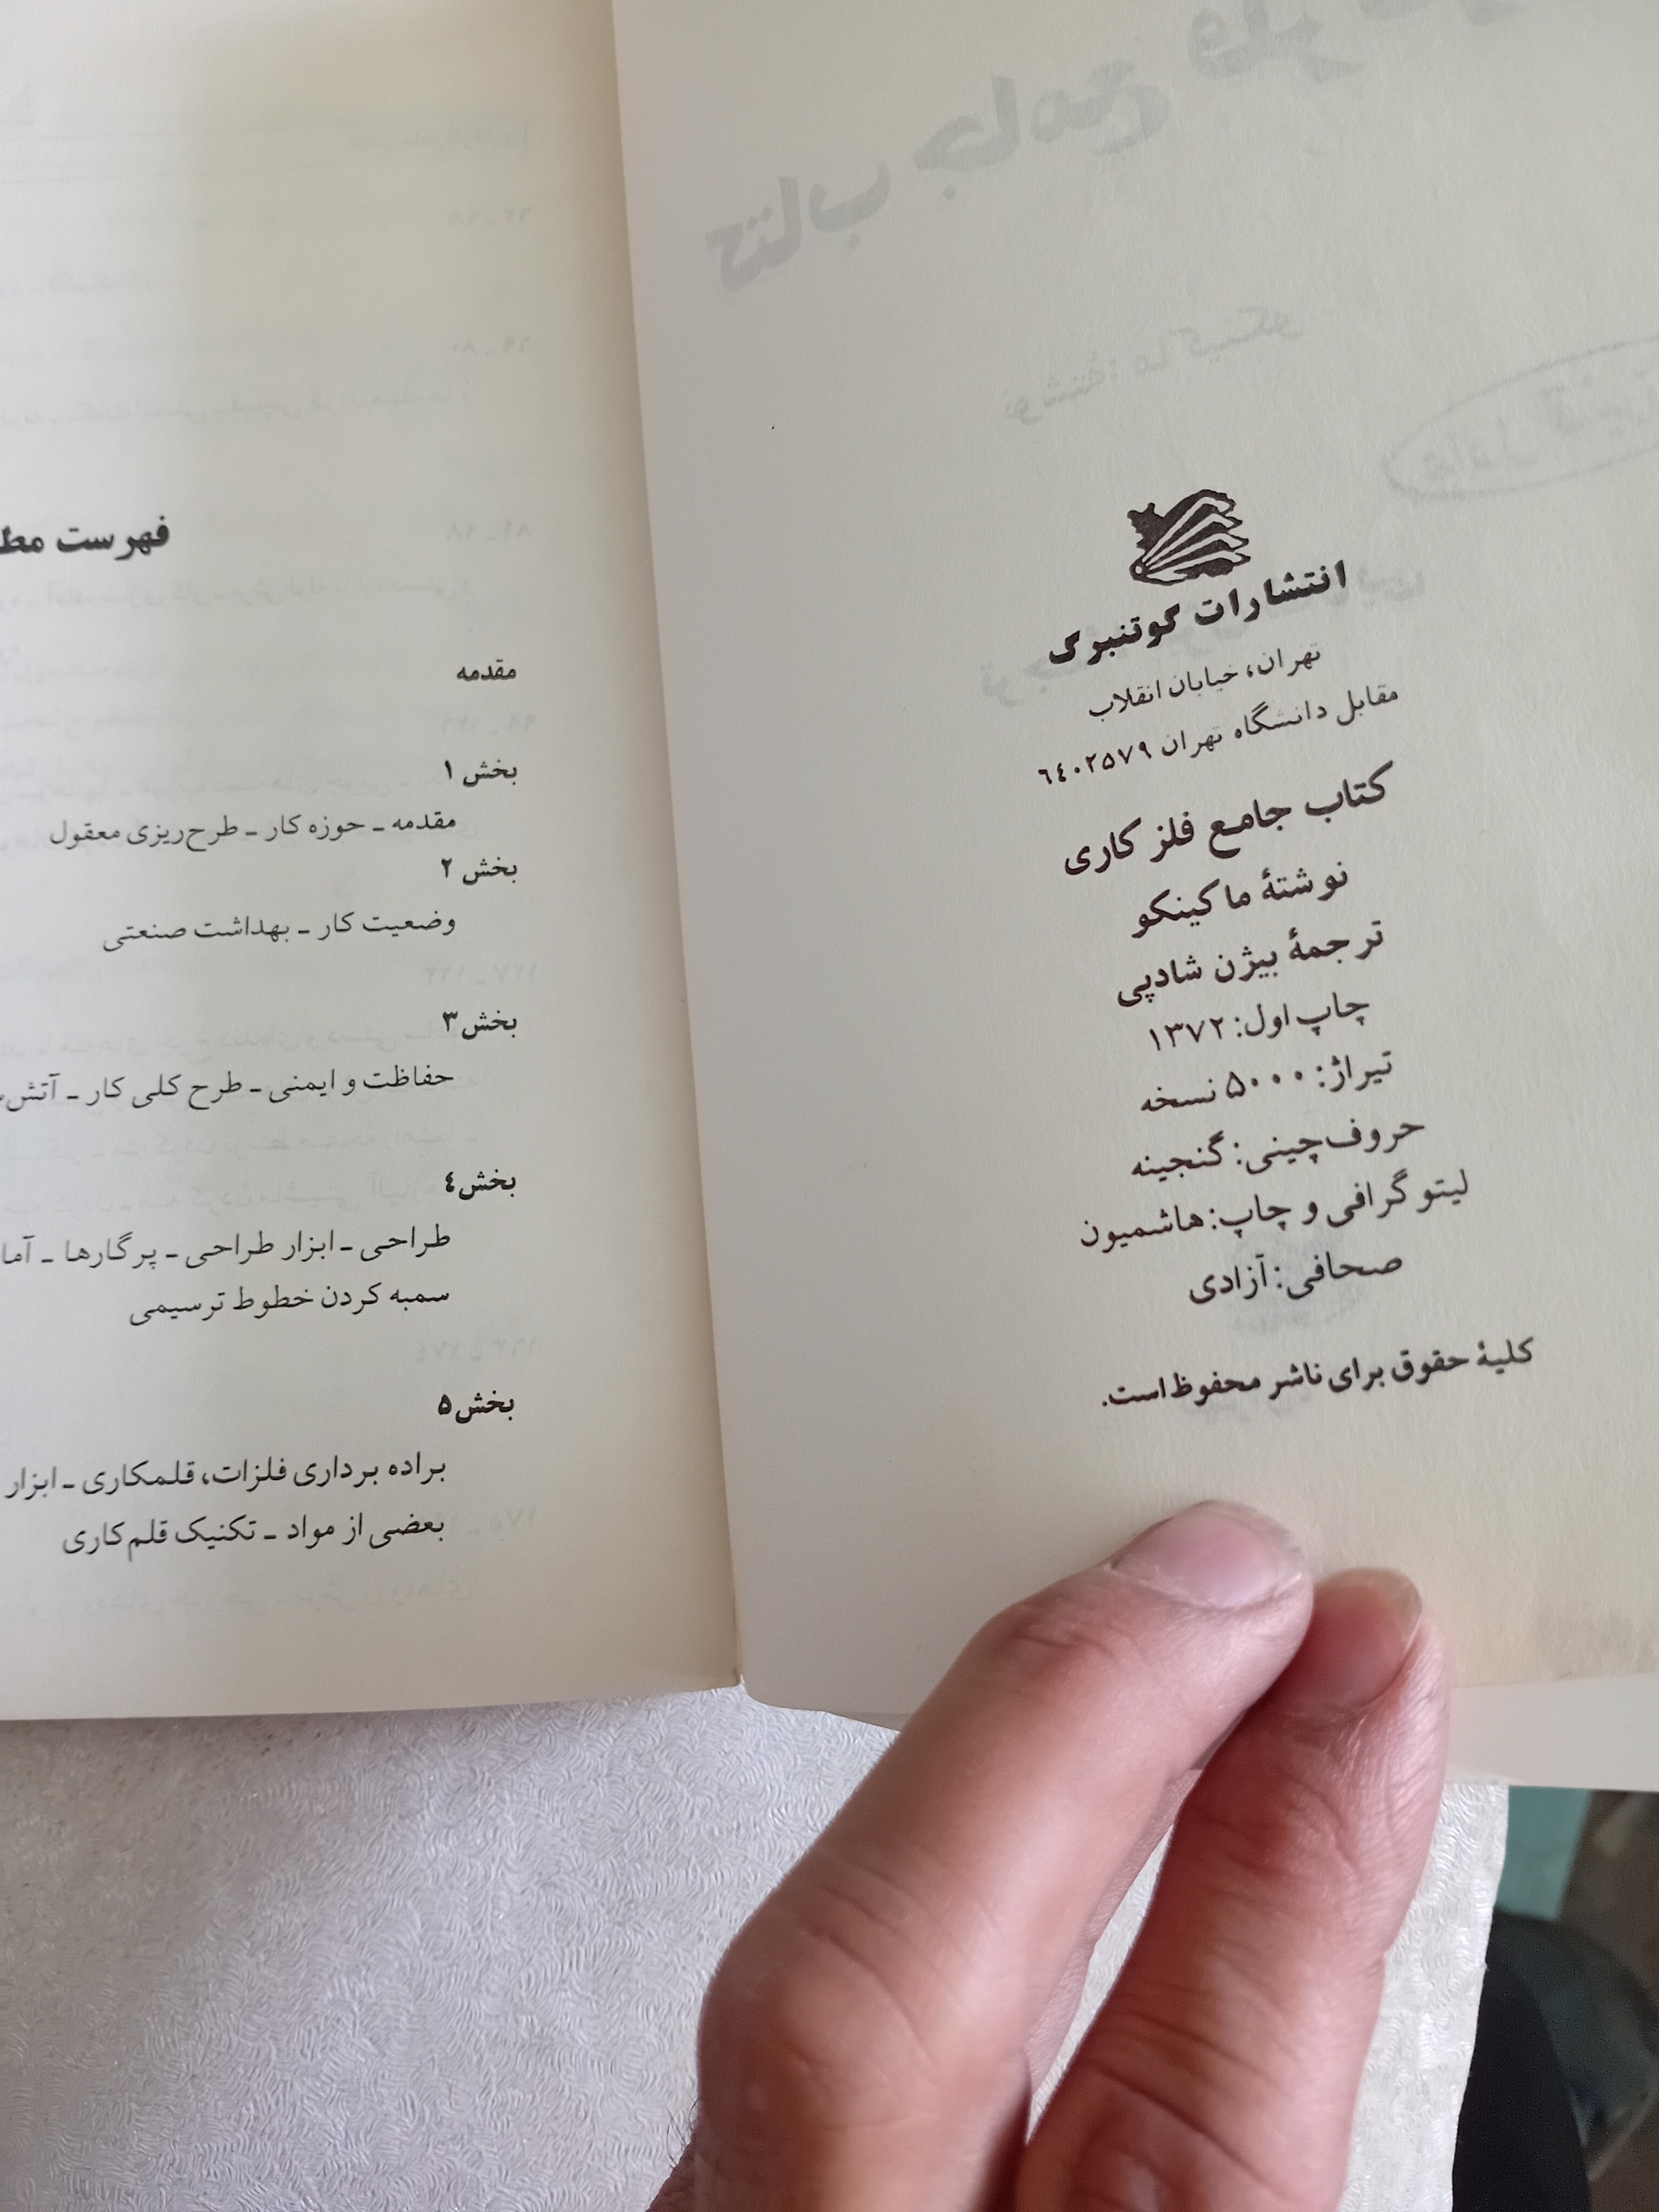 انتشارات گوتنبرگ
تهران، خیابان انقلاب
مقابل دانشگاه تهران ٦٤٠٢٥٧٩
کتاب جامع فلز کاری
نوشتهٔ ماکینکو
ترجمهٔ بیژن شادپی
چاپ اول: ۱۳۷۲
تیراژ: ۵۰۰۰ نسخه
حروف‌چینی: گنجینه
لیتوگرافی و چاپ: هاشمیون
صحافی: آزادی
کلیهٔ حقوق برای ناشر محفوظ است.
فهرست مط
مقدمه
بخش ۱
مقدمه ـ حوزه کار ـ طرح‌ریزی معقول
بخش ۲
وضعیت کار ـ بهداشت صنعتی
بخش ۳
حفاظت و ایمنی ـ طرح کلی کار ـ آتش
بخش ٤
طراحی ـ ابزار طراحی ـ پرگارها ـ آما
سمبه کردن خطوط ترسیمی
بخش ۵
براده برداری فلزات، قلمکاری ـ ابزار
بعضی از مواد ـ تکنیک قلم‌کاری